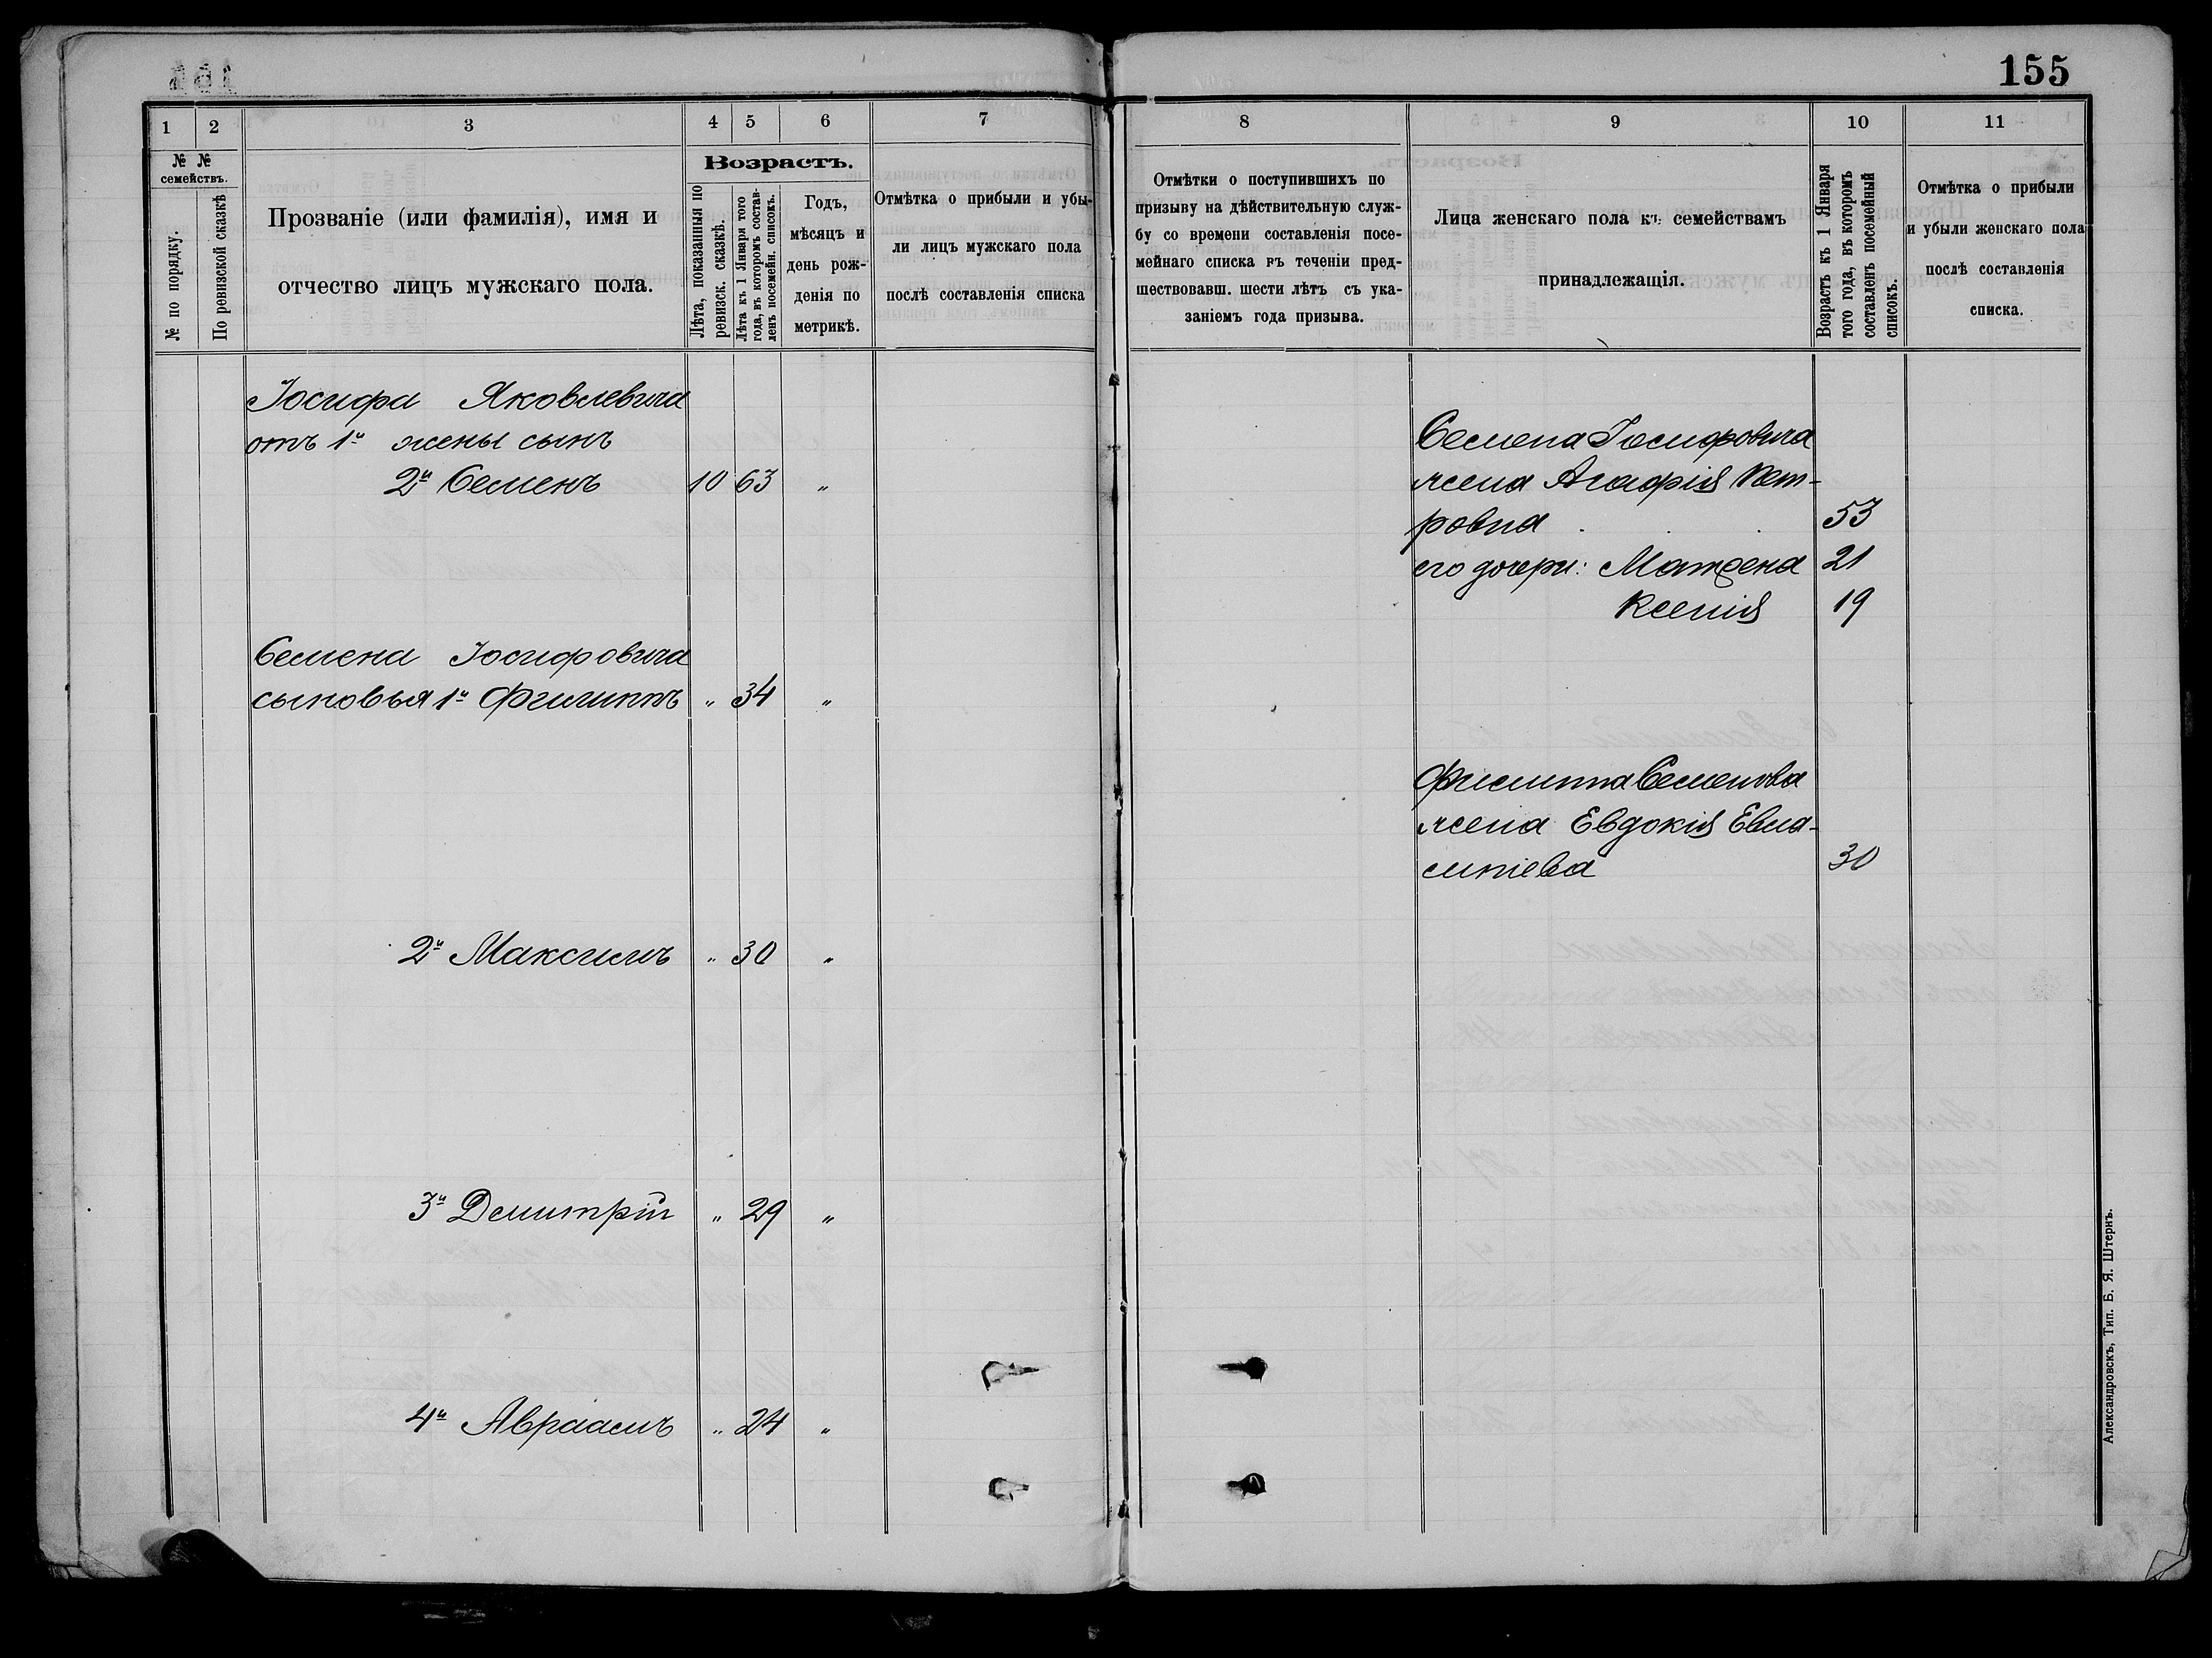 155
1 2 3 4 5 6 7
№ № семействъ.
№ по порядку.
По ревизской сказкѣ
Прозваніе (или фамилія), имя и
отчество лицъ мужскаго пола.
Возрастъ.
Лѣта, показанныя по
ревизск. сказкѣ.
Лѣта къ 1 Января того
года, въ которомъ состав-
ленъ посемейн. списокъ.
Годъ,
мѣсяцъ и
день рож-
денія по
метрикѣ.
Отмѣтка о прибыли и убы-
ли лицъ мужскаго пола
послѣ составленія списка
Іосифа Яковлевича
отъ 1й жены сынъ
2й Семенъ 10 63 „
Семена Іосифовича
сыновья 1й Филиппъ „ 34 „
2й Максимъ „ 30 „
3й Димитрій „ 29 „
4й Авраамъ „ 24 „
8 9 10 11
Отмѣтки о поступившихъ по
призыву на дѣйствительную служ-
бу со времени составленія посе-
мейнаго списка въ теченіи пред-
шествовавш. шести лѣтъ съ ука-
заніемъ года призыва.
Лица женскаго пола къ семействамъ
принадлежащія.
Возрастъ къ 1 Января
того года, въ которомъ
составленъ посемейный
списокъ.
Отмѣтка о прибыли
и убыли женскаго пола
послѣ составленія
списка.
Семена Іосифовича
жена Агафія Пет-
ровна 53
его дочери: Матрена 21
Ксенія 19
Филиппа Семенова
жена Евдокія
30
Александровскъ, Тип. Б. Я. Штернъ.